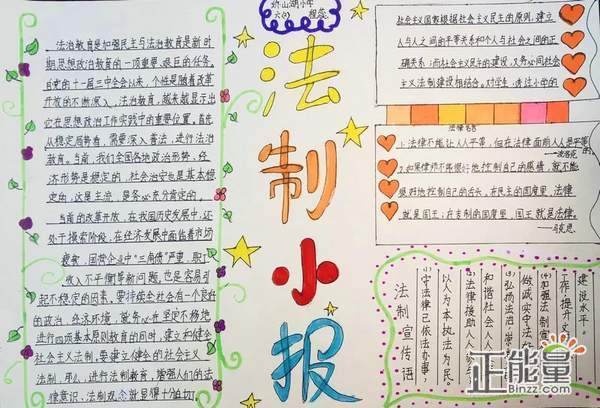 法治教育是加强民主与法治教育是新时
期思想政治教育的一项重要、艰巨的任务。
自党的十一届三中全会以来,个性是随着改革
开放的不断深入,法治教育,越来越显示出
它在思想政治工作实践中的重要位置,首先
从稳定局势看,需要深入普法,进行法治
教育。当前,我们全国各地政治形势,经
济形势是稳定的,社会治安也是基本稳
定的,这是主流,是务必充分肯定的。
当前的改革开放,在我国历史发展中,还
处于摸索阶段,在经济发展中面临着市场
疲软,国营企业中"三角债"严重,职工
收入不平衡等新问题,也是容易引
起不稳定的因素,要持续全社会有一个良好
的政治、经济环境,就务必在坚定不移地
进行四项基本原则教育的同时,建立和健全
社会主义法制,要建立健全的社会主义
法制,那么,进行法制教育,增强人们的法
律意识、法制观念就显得十分迫切
六(1) 程蕊
法制小报
社会主义国家根据社会主义民主的原则,建立
人与人之间的平等关系和个人与社会之间的正
确关系;而社会主义民主的建设,又务必同社会
主义法制建设相结合。对学生,透过小学的
法律名言
1.法律不能让人人平等,但在法律面前人人是平等的。
——波洛克
2.如果律师不能很好地控制自己的感情,就不能
很好地控制自己的舌头,在民主的国度里,法律
就是国王;在专制的国度里,国王就是法律。
——马克思
法制宣传语
(1)守法律己依法办事,
以人为本执法为民。
(2)法律援助人人
和谐社会人人
(3)弘扬法治,崇
做诚实守法
(4)加强法制宣
工作,提升文
建设水平。
正能量
Binzz.com